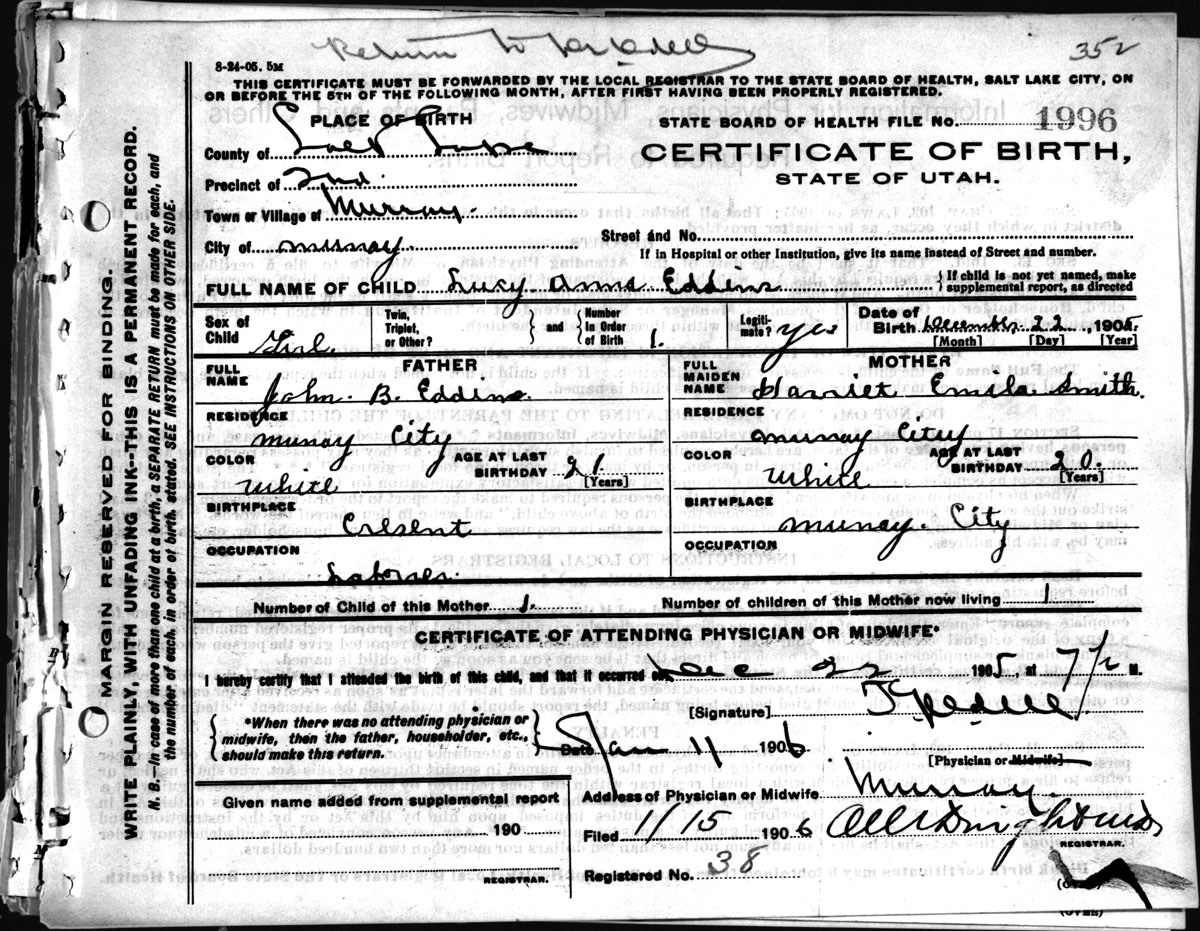 Return to
352
8-24-05. 5M
THIS CERTIFICATE MUST BE FORWARDED BY THE LOCAL REGISTRAR TO THE STATE BOARD OF HEALTH, SALT LAKE CITY, ON
OR BEFORE THE 5TH OF THE FOLLOWING MONTH, AFTER FIRST HAVING BEEN PROPERLY REGISTERED.
PLACE OF BIRTH
STATE BOARD OF HEALTH FILE NO. 1996
County of Salt Lake
CERTIFICATE OF BIRTH,
STATE OF UTAH.
Precinct of 2nd.
Town or Village of Murray.
City of Murray.
Street and No.
If in Hospital or other Institution, give its name instead of Street and number.
FULL NAME OF CHILD Lucy Anna Eddins
{If child is not yet named, make
supplemental report, as directed
Sex of
Child Girl.
Twin,
Triplet,
or Other? } and { Number
In Order
of Birth 1.
Legiti-
mate? yes
Date of
Birth December 22, 1905.
[Month] [Day] [Year]
FATHER
FULL
NAME John B. Eddins.
RESIDENCE
Murray City
COLOR
White
AGE AT LAST
BIRTHDAY 21
[Years]
BIRTHPLACE
Cresent
OCCUPATION
Laborer.
MOTHER
FULL
MAIDEN
NAME Harriet Smith.
RESIDENCE
Murray City
COLOR
White
AGE AT LAST
BIRTHDAY 20.
[Years]
BIRTHPLACE
Murray. City
OCCUPATION
Number of Child of this Mother 1.
Number of children of this Mother now living 1
CERTIFICATE OF ATTENDING PHYSICIAN OR MIDWIFE*
I hereby certify that I attended the birth of this child, and that it occurred on Dec 22 1905, at 7 1/2 M.
{*When there was no attending physician or
midwife, then the father, householder, etc.,
should make this return.}
[Signature]
Date Jan 11 1906.
[Physician or Midwife]
Given name added from supplemental report
190
REGISTRAR.
Address of Physician or Midwife Murray.
Filed 1/15 1906
REGISTRAR.
Registered No. 38
(OVER)
(OVER)
MARGIN RESERVED FOR BINDING.
WRITE PLAINLY, WITH UNFADING INK--THIS IS A PERMANENT RECORD.
N. B. In case of more than one child at a birth, a SEPARATE RETURN must be made for each, and
the number of each, in order of birth, stated. SEE INSTRUCTIONS ON OTHER SIDE.